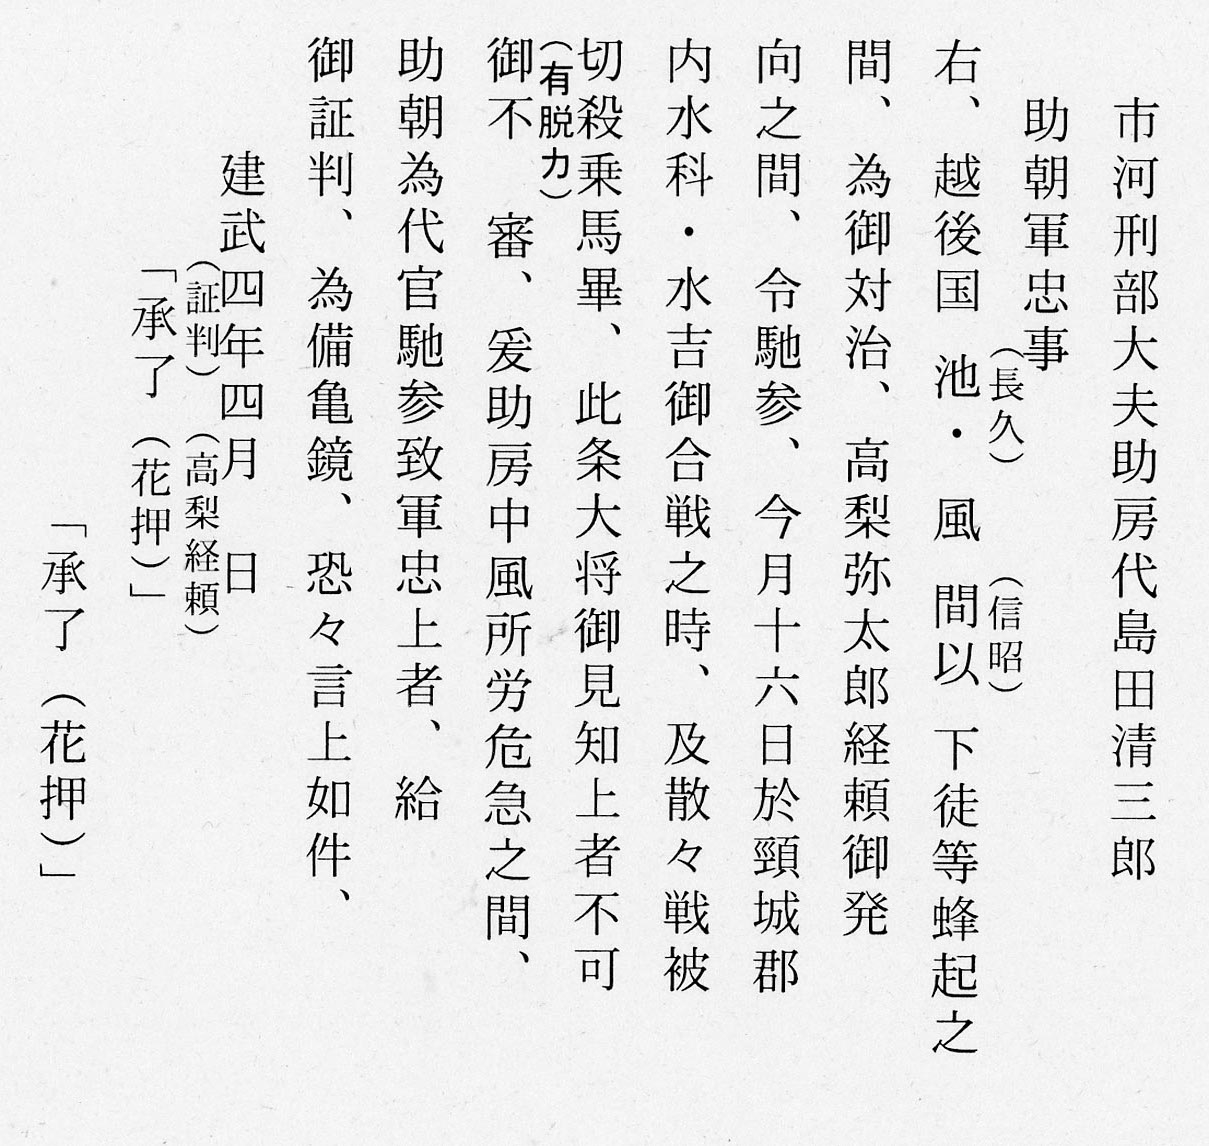 市河刑部大夫助房代島田清三郎
助朝軍忠事
（長久）
（信昭）
右、越後国池・風間以下徒等蜂起之
間、為御対治、高梨弥太郎経頼御発
向之間、令馳参、今月十六日於頸城郡
内水科・水吉御合戦之時、及散々戦被
切殺乗馬畢、此条大将御見知上者不可
（有脱カ）
御不審、爰助房中風所労危急之間、
助朝為代官馳参致軍忠上者、給
御証判、為備亀鏡、恐々言上如件、
建武四年四月　日
（証判）（高梨経頼）
「承了（花押）」
「承了（花押）」